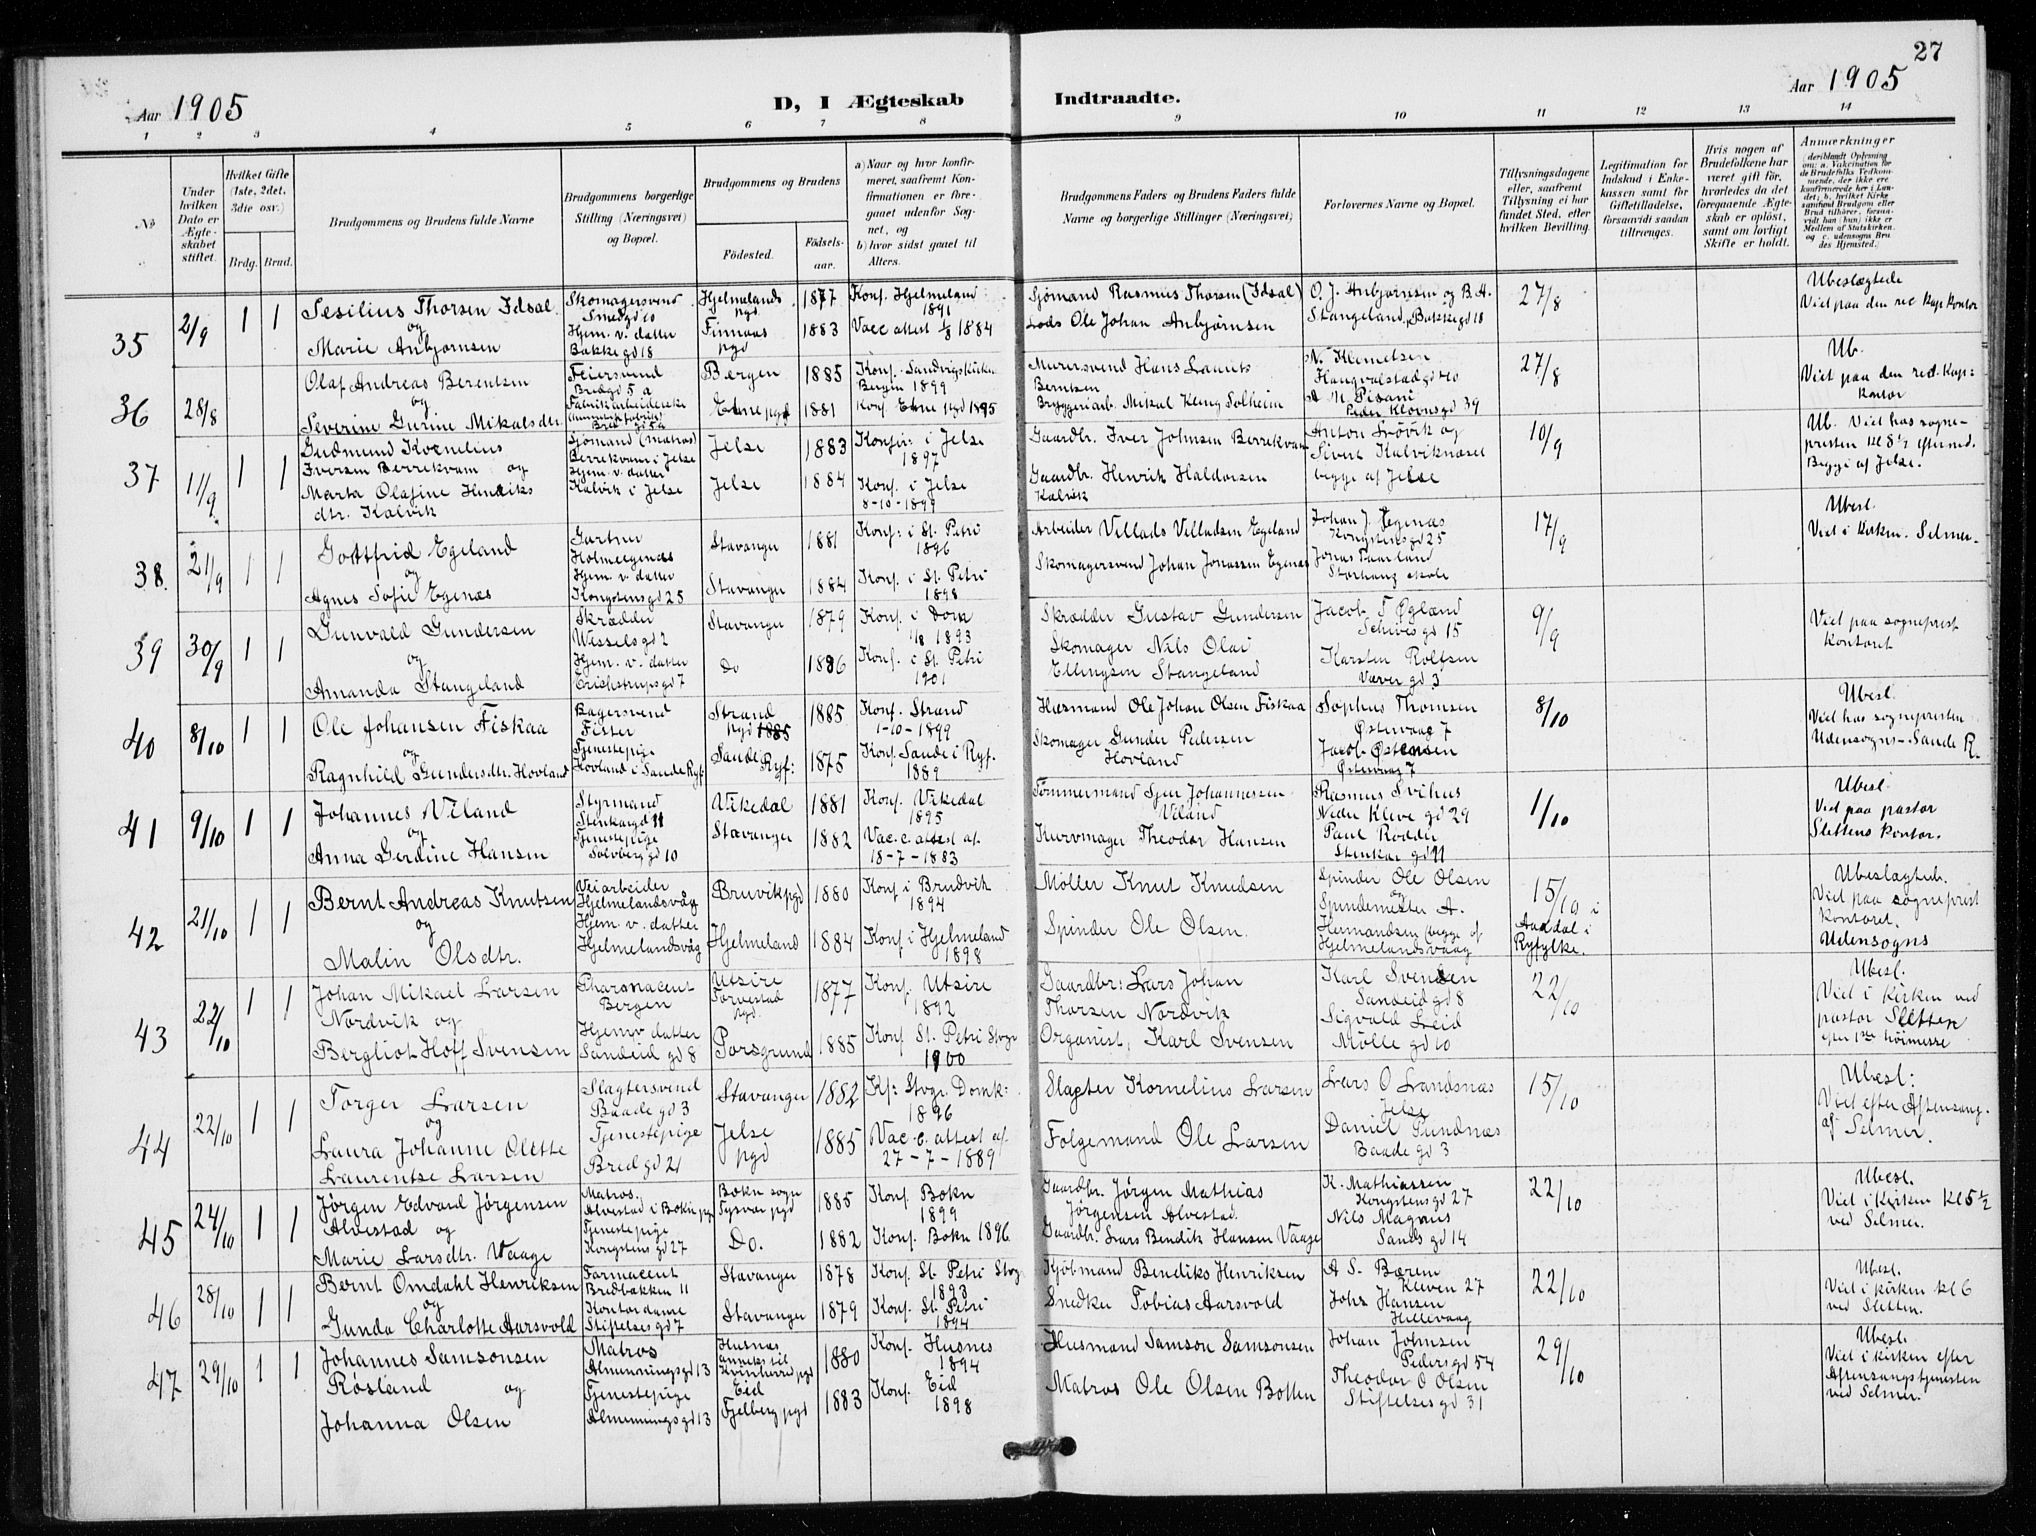 27
Aar 1905
D, I Ægteskab
Indtraadte.
Aar 1905
1 2 3 4 5 6 7 8 9 10 11 12 13 14
No
Under hvilken Dato er Ægteskabet stiftet.
Hvilket Gifte (1ste, 2det, 3die osv.)
Brdg. Brud.
Brudgommens og Brudens fulde Navne
Brudgommens borgerlige Stilling (Næringsvei) og Bopæl.
Brudgommens og Brudens
Födested.
Födsels-aar.
a) Naar og hvor konfirmeret, saafremt Konfirmationen er foregaaet udenfor Sognet, og
b) hvor sidst gaaet til Alters.
Brudgommens Faders og Brudens Faders fulde Navne og borgerlige Stillinger (Næringsvei)
Forlovernes Navne og Bopæl.
Tillysningsdagene eller, saafremt Tillysning ei har fundet Sted, efter hvilken Bevilling.
Legitimation for Indskud i Enkekassen samt for Giftetilladelse, forsaavidt saadan tiltrænges.
Hvis nogen af Brudefolkene har været gift för, hvorledes da det foregaaende Ægteskab er oplöst, samt om lovligt Skifte er holdt.
Anmærkninger
deriblandt Oplysning om: a. Vakcination for de Brudefolks Vedkommende, der ikke ere konfirmerede her i Landet; b. hvilket Kirkesamfund Brudgom eller Brud tilhörer, forsaavidt han (hun) ikke er Medlem af Statskirken. og c. udensogns Brudes Hjemsted.)
35 2/9 1 1
Sesilius Thorsen Idsal
og
Marie Anbjørnsen
Skomagersvend
Smedgd 10
Hjem. v. datter
Bakkegd 18
Hjelmelands pgd. 1877
Finnaas pgd 1883
Konf. Hjelmeland 1891
Vacc attest 1/8 1884
Sjømand Rasmus Thorsen (Idsal)
Lods Ole Johan Anbjørnsen
O. J. Anbjørnsen og B.A.
Stangeland, Bakkegd 18
27/8
Ubeslægtede
Viet paa den rec kap kontor
36 28/8
Olaf Andreas Berentsen
og
Severine Gurine Mikalsdtr.
Feiersvend
Bredgd 5 a
Bergen 1885
Etne pgd 1881
Konf. Sandvigskirken
Bergen 1899
Konf Etne pgd 1895
Murersvend Hans Laurits
Berntsen
Bryggeriarb. Mikal Solheim
N. Klemetsen
Haugvalstadgd 40
Peder Klovsgd 39
27/8
Ub.
Viet paa den red. Kap: kontor
37 11/9 1 1
Gudmund Kornelius
Iversen Berrekvam og
Marta Olafine Henriks
dtr. Kalvik
Sjømand (matros)
Berrekvam i Jelse
Hjem. v. datter
Kalvik i Jelse
Jelse 1883
Jelse 1884
Konfir: i Jelse 1897
Konf. i Jelse
8-10-1899
Gaardbr. Iver Johnsen Berrekvam
Gaardbr. Henrik Haldorsen
Kalvik
Anton Løvik og
Sivert Kalviknæset
begge af Jelse
10/9
Ub. Viet hos sogne-
presten kl 8½ efterm.
Begge af Jelse.
38. 21/9 1 1
Gottfrid Egeland
og
Agnes Sofie Egenæs
Gartner
Holmeegenæs
Hjem. v. datter
Kongstensgd 25
Stavanger 1881
Stavanger 1884
Konf: i St. Petri 1896
Konf. i St. Petri 1898
Arbeider Villads Villadsen Egeland
Skomagersvend Johan Jonassen Egenæs
Johan J. Egenæs
Kongstensgd 25
Jonas Faarland
Storhaug skole
17/9
Ubesl.
Viet i kirken. Selmer.
39 30/9 1 1
Gunvald Gundersen
og
Amanda Stangeland
Skrædder
Wesselsgd 2
Hjem. v. datter
Erichstrupsgd 7
Stavanger 1879
Do 1886
Konf. i Dom 1/8 1893
Konf. i St. Petri 1901
Skrædder Gustav Gundersen
Skomager Nils Olai
Ellingsen Stangeland
Jacob T Øgland
Schivesgd 15
Karsten Rolfsen
Vævergd 3
9/9
Viet paa sogneprest
kontoret
40 8/10 1 1
Ole Johansen Fiskaa
og
Ragnhild Gundersdtr. Hovland
Bagersvend
Fister
Tjenestepige
Hovland i Sande Ryf
Strand pgd 1885 1885
Sande Ryf: 1875
Konf. Strand
1-10-1899
Konf. Sande i Ryf. 1889
Husmand Ole Johan Olsen Fiskaa
Skomager Gunder Pedersen
Hovland
Sophus Thomsen
Østervaag 7
Jacob Østensen
Østervaag 7
8/10
Ubesl.
Viet hos sognepresten
Udensogns-Sande R.
41 9/10 1 1
Johannes Viland
og
Anna Gerdine Hansen
Styrmand
Stenkargd 11
Tjenestepige
Solvberggd 10
Vikedal 1881
Stavanger 1882
Konf. Vikedal 1895
Vac.c. attest af.
18-7-1883
Tømmermand Sjur Johannessen
Viland
Kurvmager Theodor Hansen
Rasmus Svihus
Nedre Kleve gd 29
Paul Rodder
Stenkar gd 11
1/10
Ubesl.
Viet paa pastor
Slettens kontor.
42 21/10 1 1
Bernt Andreas Knutsen
og
Malin Olsdtr.
Veiarbeider
Hjelmelandsvåg
Hjem v. datter
Hjelmelandsvåg
Bruvik pgd 1880
Hjelmeland 1884
Konf i Brudvik 1894
Konf i Hjelmeland 1898
Möller Knut Knudsen
Spinder Ole Olsen.
Spinder Ole Olsen
og
Spindemester A.
Hermandsen begge af
Hjelmelandsvaag
15/10 i
Aardal i
Ryfylke.
Ubeslagted.
Viet paa sogneprest
kontoret.
Udensogns
43 22/10 1 1
Johan Mikael Larsen
Nordvik og
Bergliot Hoff Svensen
Pharmacent
Bergen
Hjemv datter
Sandeid gd 8
Utsire
Torvestad pgd. 1877
Porsgrund 1885
Konf. Utsire 1892
Konf St. Petri Stvgr 1900
Gaardbr: Lars Johan
Thorsen Nordvik
Organist, Karl Svensen
Karl Svendsen
Sandeid gd 8
Sigvald Leid
Mölle gd 10
22/10
Ubesl.
Viet i kirken ved
pastor Sletten
efter 1ste höimesse
44 22/10 1 1
Torger Larsen
og
Laura Johanne Olette
Laurentse Larsen
Slagtersvend
Baade gd 3
Tjenestepige
Bred gd 21
Stavanger 1882
Jelse pgd 1885
Kf: Stvgr. Domk: 1896
Vac. c. attest af.
27-7-1889
Slagter Kornelius Larsen
Folgemand Ole Larsen
Lars O Landsnæs
Jelse
Daniel Sundnæs
Baade gd 3
15/10
Ubesl:
Viet efter Aftensang.
af Selmer.
45 24/10 1 1
Jørgen Edvard Jørgensen
Alvestad og
Marie Larsdtr. Vaage
Matros.
Alvestad i Bokn pgd
Tjenestepige
Kongstens gd 27
Bokn sogn
Tysvær pgd 1885
Do. 1882
Konf. Bokn 1899
Konf. Bokn 1896
Gaardbr. Jørgen Mathias
Jørgensen Alvestad.
Gaardbr. Lars Bendik Hansen Vaage
K. Mathiassen
Kongstensgd 27
Nils Magnus
Sands gd 14
22/10
Ubesl.
Viet i Kirken kl 5½
ved Selmer.
46 28/10 1 1
Bernt Omdahl Henriksen
og
Gunda Charlotte Aarsvold
Farmacent
Bredbakken 11
Kontordame
Stiftelsesgd 7
Stavanger 1878
Stavanger 1879
Konf. St. Petri Stvg 1893
Konf. St. Petri 1894
Kjöbmand Bendiks Henriksen
Snedker Tobias Aarsvold
A S. Bærem
Kleven 27
Johs Hansen
Hillevaag
22/10
Ubesl.
Viet i kirken kl 6
ved Sletten.
47 29/10 1 1
Johannes Samsonsen
Røsland og
Johanna Olsen
Matros
Almenningsgd 13
Tjenestepige
Almenningsgd 13
Husnes
anneks til
Kvinherred pgd 1880
Eid
Fjelberg pgd 1883
Konf. Husnes 1894
Konf. Eid 1898
Husmand Samson Samsonsen
Matros Ole Olsen Botten
Johan Johnsen
Pedersgd 54
Theodor O Olsen
Stiftelsesgd 31
29/10
Ubesl.
Viet i kirken efter
Aftensangstjenesten
ved Selmer.